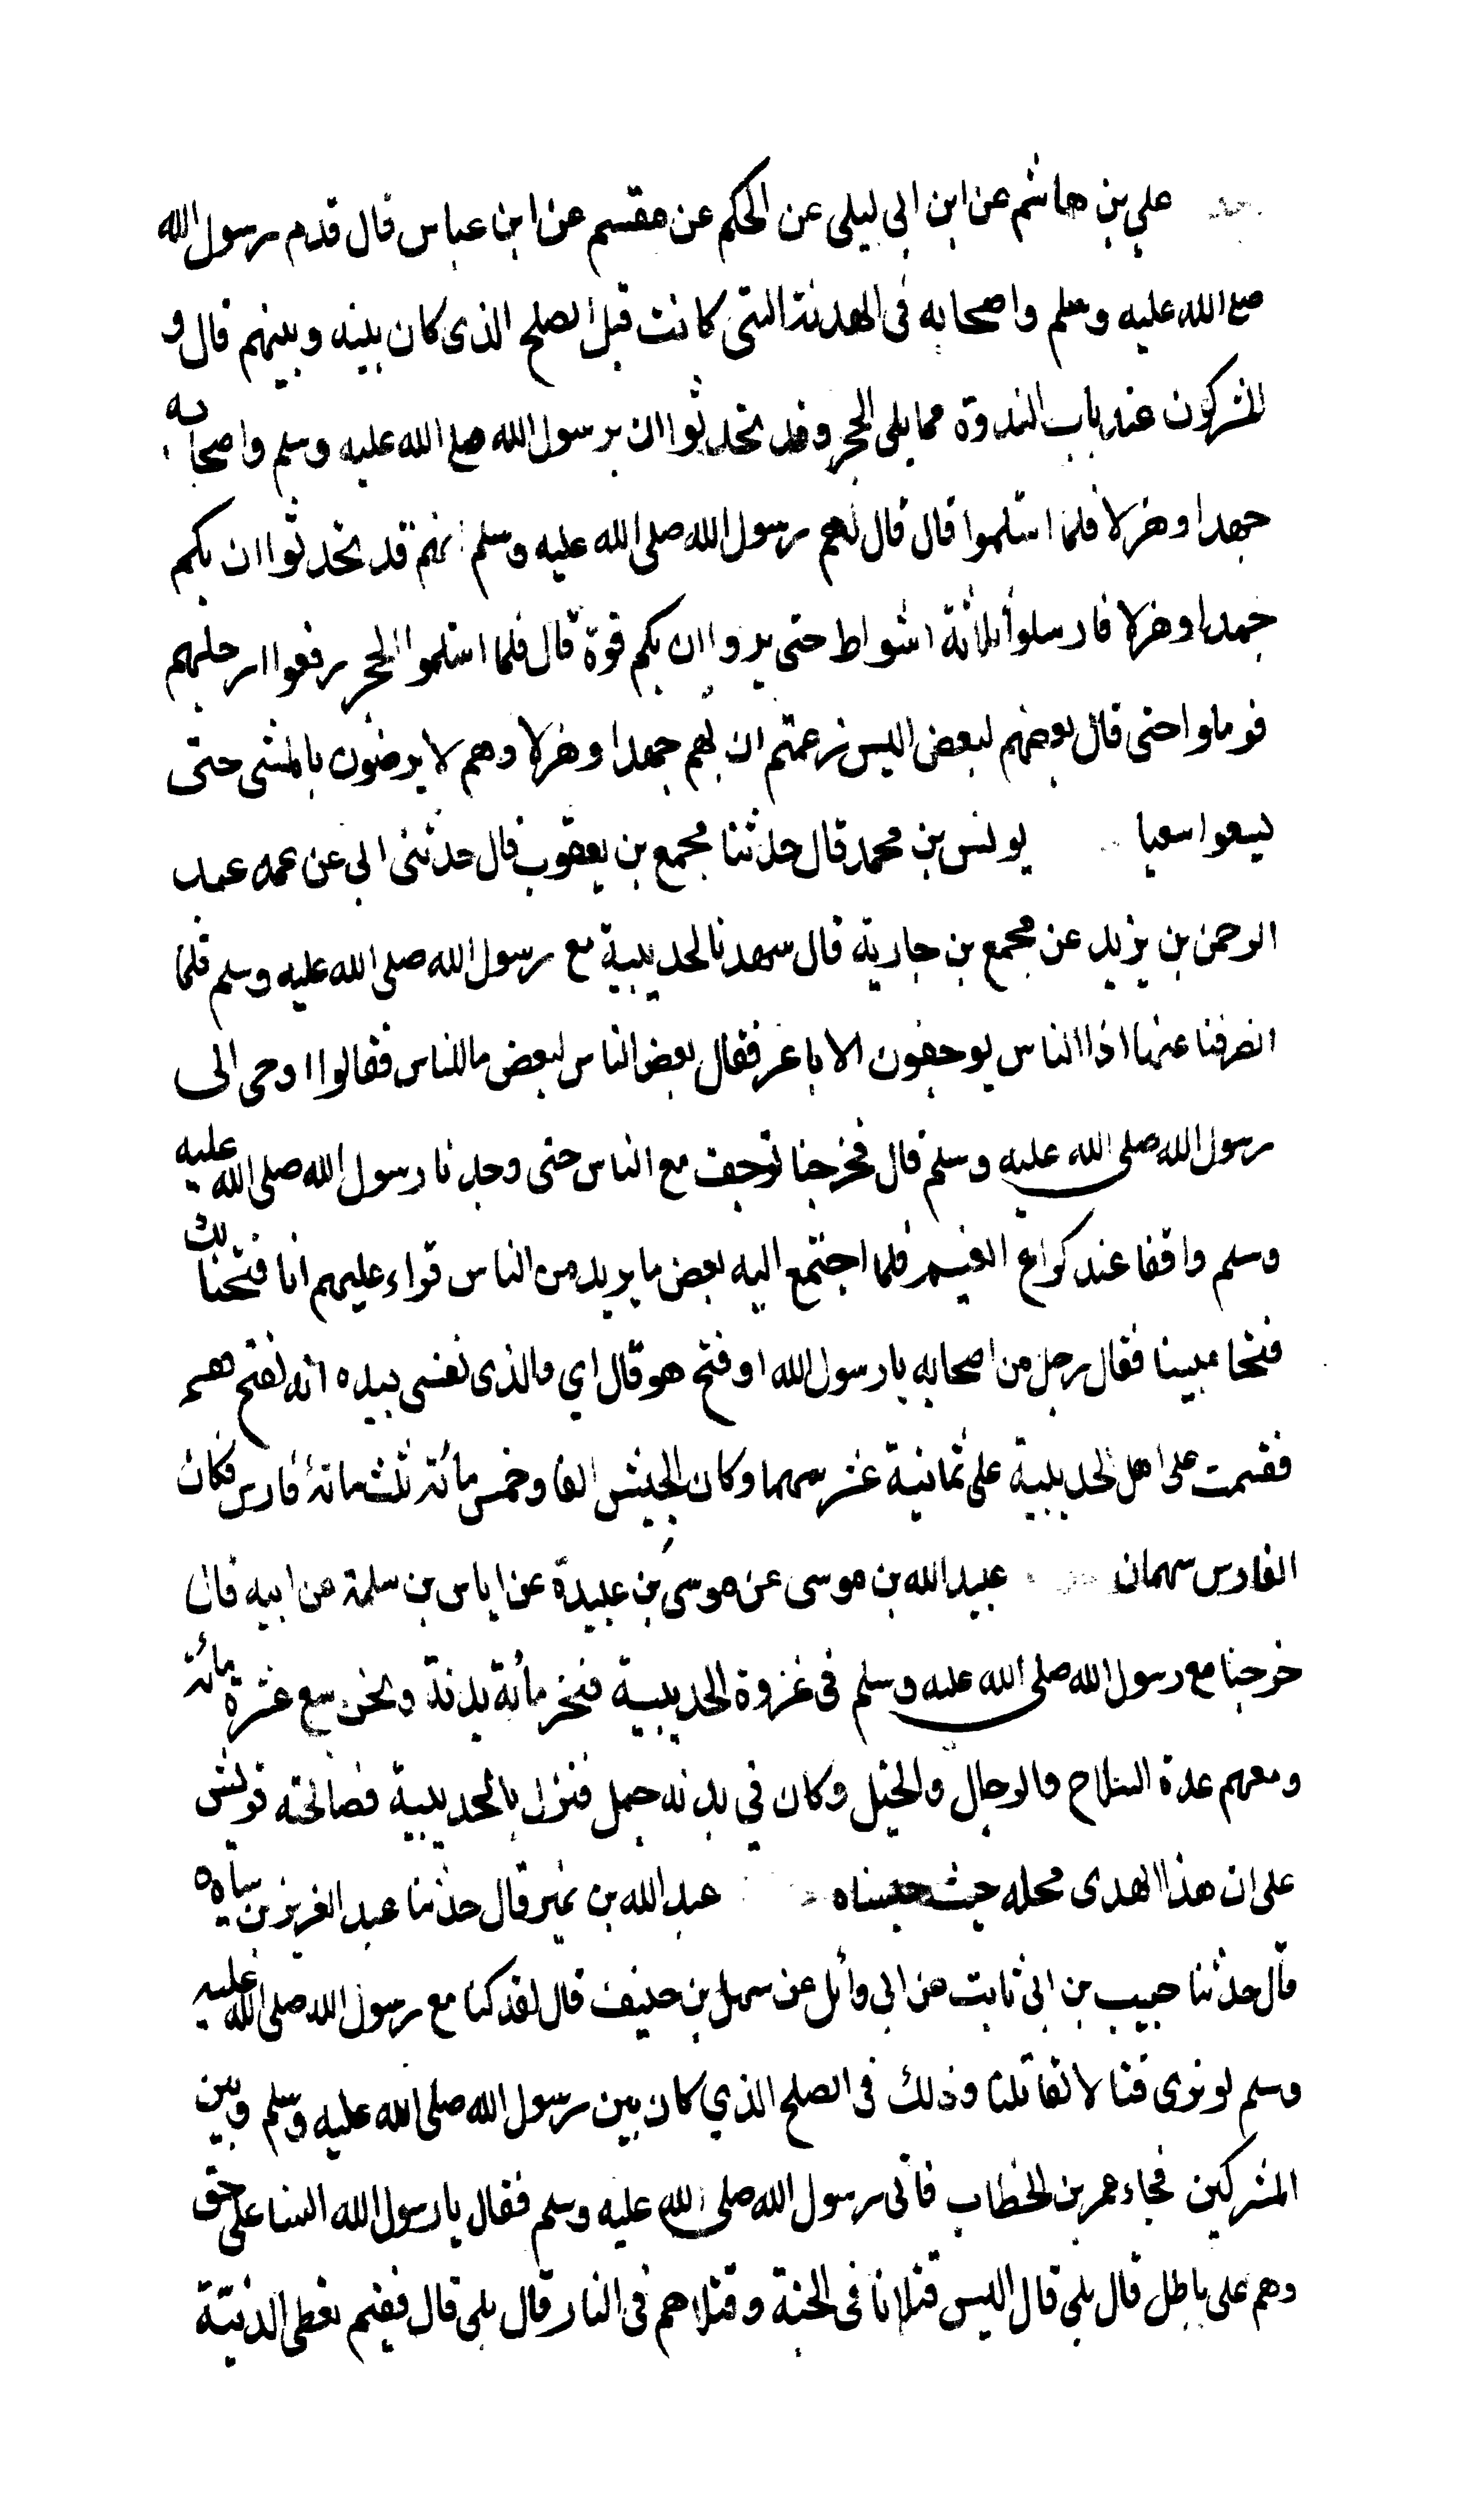 علي بن هاشم عن ابن ابى ليلى عن الحكم عن مقسم عن ابن عباس قال قدم رسول الله
صلع الله عليه وسلم واصحابه فى الهدنة التى كانت قبل الصلح الذى كان بينه وبينهم قال و
المشركون عند باب الندوة مما يلى الحجر وقد تحدثوا ان برسول الله صلع الله عليه وسلم واصحابه
جهدا وهزلا فلما استلموا قال قال لهم رسول الله صلى الله عليه وسلم انهم قد تحدثوا ان بكم
جهدا وهزلا فارسلوا ثلاثة اشواط حتى يروا ان بكم قوة قال فلما استلموا الحجر رفعوا ارجلهم
فرملوا حتى قال بعضهم لبعض اليس زعمتم ان بهم جهدا وهزلا وهم لا يرضون بالمشى حتى
يسعوا سعيا يونس بن محمد قال حدثنا مجمع بن يعقوب قال حدثنى ابى عن عمه عبد
الرحمن بن يزيد عن مجمع بن جارية قال شهدنا الحديبية مع رسول الله صلى الله عليه وسلم فلما
انصرفنا عنها اذا الناس يوجفون الاباعر فقال بعض الناس لبعض ما للناس فقالوا اوحى الى
رسول الله صلى الله عليه وسلم قال فخرجنا نوجف مع الناس حتى وجدنا رسول الله صلى الله عليه
وسلم واقفا عند كراع الغميم فلما اجتمع اليه بعض ما يريد من الناس قراء عليهم انا فتحنا لك
فتحا مبينا فقال رجل من اصحابه يا رسول الله او فتح هو قال اي والذى نفسى بيده انه لفتح
فقسمت على اهل الحديبية على ثمانية عشر سهما وكان الجيش الفا وخمس مائة ثلث مائة فارس فكان
الفارس سهمان عبيد الله بن موسى عن موسى بن عبيدة عن اياس بن سلمة عن ابيه قال
خرجنا مع رسول الله صلى الله عليه وسلم فى غزوة الحديبية فنحر مائة بدنة ونحن سبع عشرة مائة
ومعهم عدة السلاح والرجال والخيل وكان في بدنه جمل فنزل بالحديبية فصالحته قريش
على ان هذا الهدى محله حيث حبسناه عبد الله بن نمير قال حدثنا عبد العزيز بن سياه
قال حدثنا حبيب بن ابى ثابت عن ابى وائل عن سهل بن حنيف قال لقد كنا مع رسول الله صلى الله عليه
وسلم لو نرى قتالا لقاتلنا وذلك فى الصلح الذي كان بين رسول الله صلى الله عليه وسلم وبين
المشركين فجاء عمر بن الخطاب فاتى رسول الله صلى الله عليه وسلم فقال يا رسول الله السنا على حق
وهم على باطل قال بلى قال اليس قتلانا فى الجنة وقتلاهم فى النار قال بلى قال ففيم نعطى الدنية